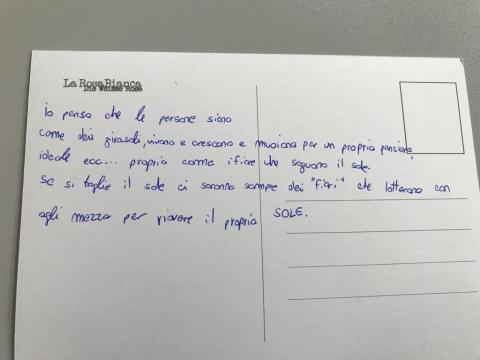 La Rosa Bianca
Die Weisse Rose
io penso che le persone siano
come dei girasoli, vivono e crescono e muoiono per un proprio pensiero,
ideale ecc... proprio come i fiori che seguono il sole.
Se si toglie il sole ci saranno sempre dei "fiori" che lotteranno con
ogni mezzo per riavere il proprio SOLE.